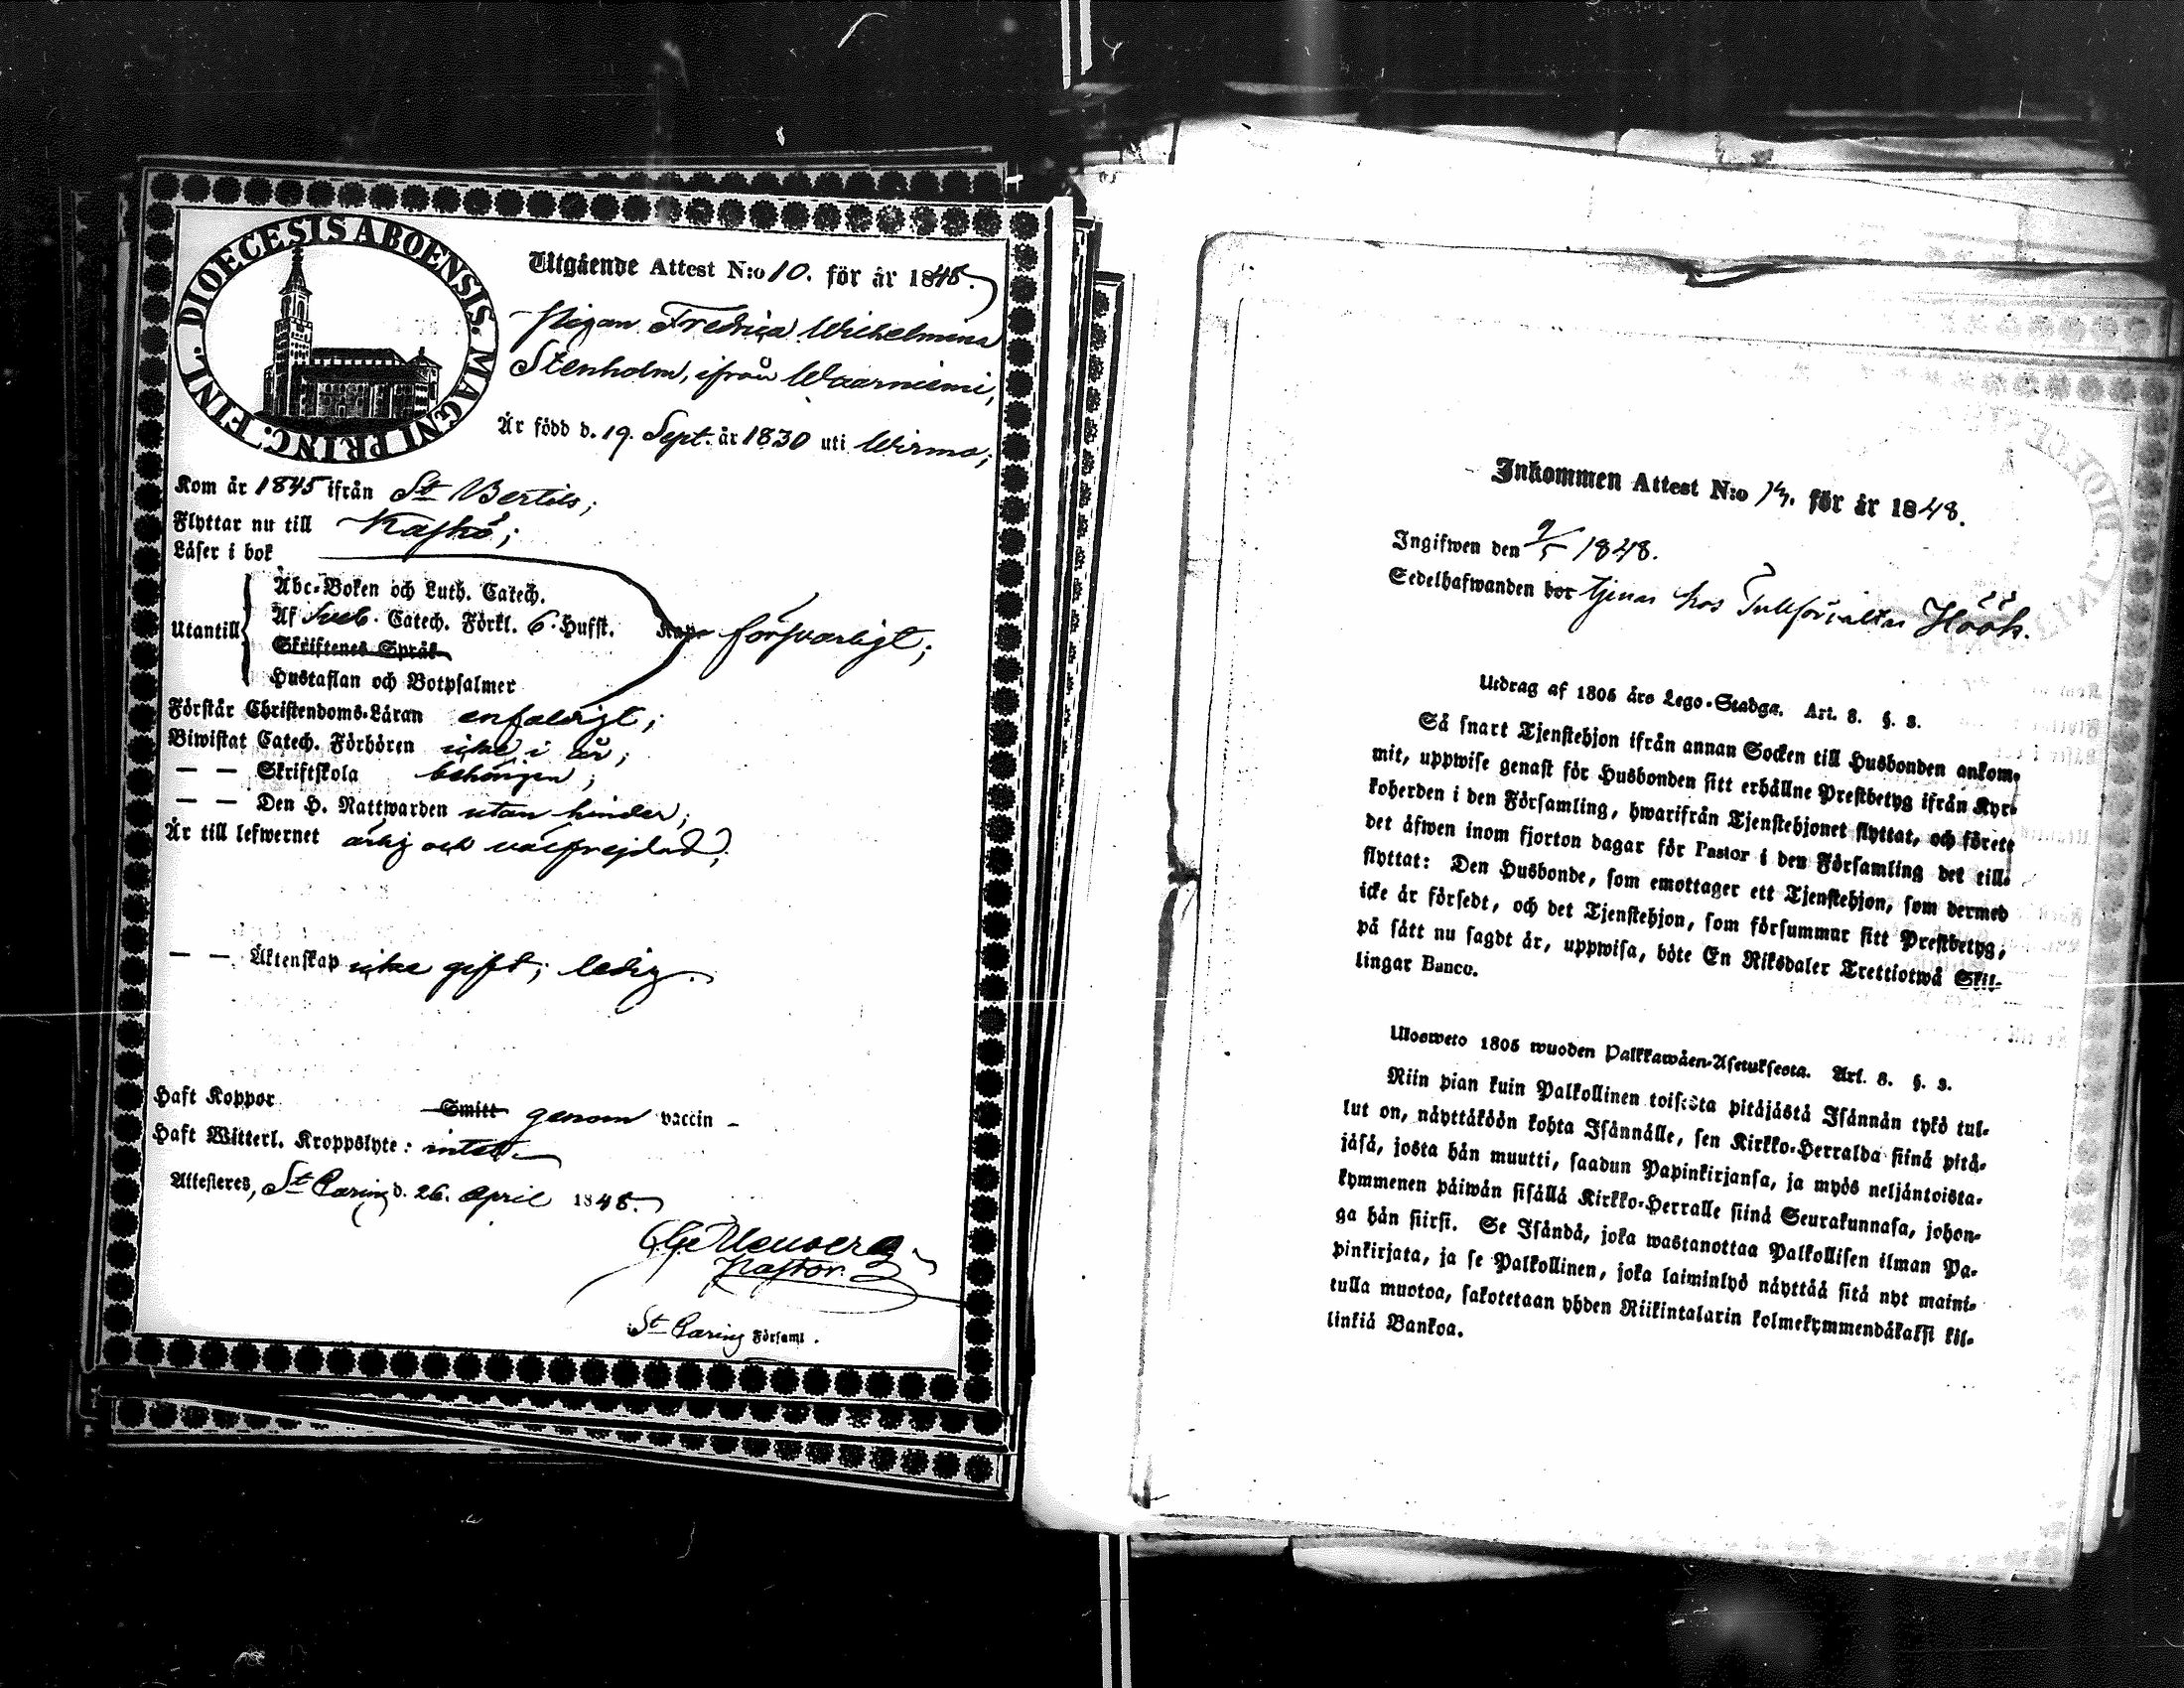 DIOECESIS ABOENSIS. MAGNI PRINC. FINL.
Utgående Attest N:o 10. för år 1848.
Pigan Fredrica Wilhelmina
Stenholm, ifrån Waarniemi,
Är född d. 19. Sept. år 1830 uti Wirmo;
Kom år 1845 ifrån St Bertils;
Flyttar nu till Kaskö;
Läser i bok
Abc-Boken och Luth. Catech.
Utantill Af Sveb. Catech. Förkl. 6. Hufst. Kap. försvarligt;
Skriftenes Språk
Hustaflan och Botpsalmer
Förstår Christendoms-Läran enfaldigt;
Biwistat Catech. Förhören icke i år;
— — Skriftskola behörigen;
— — Den H. Nattwarden utan hinder;
Är till lefwernet ärlig och välfrejdad;
— — Äktenskap icke gift; ledig.
Haft Koppor Smitt genom vaccin -
Haft Witterl. Kroppslyte: intet
Attesteres, St Carins d. 26. April 1848.
Pastor.
St Carins Församl.
Inkommen Attest N:o 17. för år 1848.
Ingifwen den 9/5 1848.
Sedelhafwanden bor tjenar hos Tullförvaltar Höök.
Utdrag af 1805 års Lego-Stadga. Art. 8. §. 3.
Så snart Tjenstehjon ifrån annan Socken till Husbonden ankom-
mit, uppwise genast för Husbonden sitt erhållne Prestbetyg ifrån Kyr-
koherden i den Församling, hwarifrån Tjenstehjonet flyttat, och förete
det äfwen inom fjorton dagar för Pastor i den Församling det till-
flyttat: Den Husbonde, som emottager ett Tjenstehjon, som dermed
icke är försedt, och det Tjenstehjon, som försummar sitt Prestbetyg,
på sätt nu sagdt är, uppwisa, böte En Riksdaler Trettiotwå Skil-
lingar Banco.
Ulosweto 1805 wuoden Palkkawäen-Asetuksesta. Art. 8. §. 3.
Niin pian kuin Palkollinen toisesta pitäjästä Isännän tykö tul-
lut on, näyttäköön kohta Isännälle, sen Kirkko-Herralda siinä pitä-
jäsä, josta hän muutti, saadun Papinkirjansa, ja myös neljäntoista-
kymmenen päiwän sisällä Kirkko-Herralle siinä Seurakunnasa, johon-
ga hän siirsi. Se Isändä, joka wastanottaa Palkollisen ilman Pa-
pinkirjata, ja se Palkollinen, joka laiminlyö näyttää sitä nyt maini-
tulla muotoa, sakotetaan yhden Riikintalarin kolmekymmendäkaksi kil-
linkiä Bankoa.